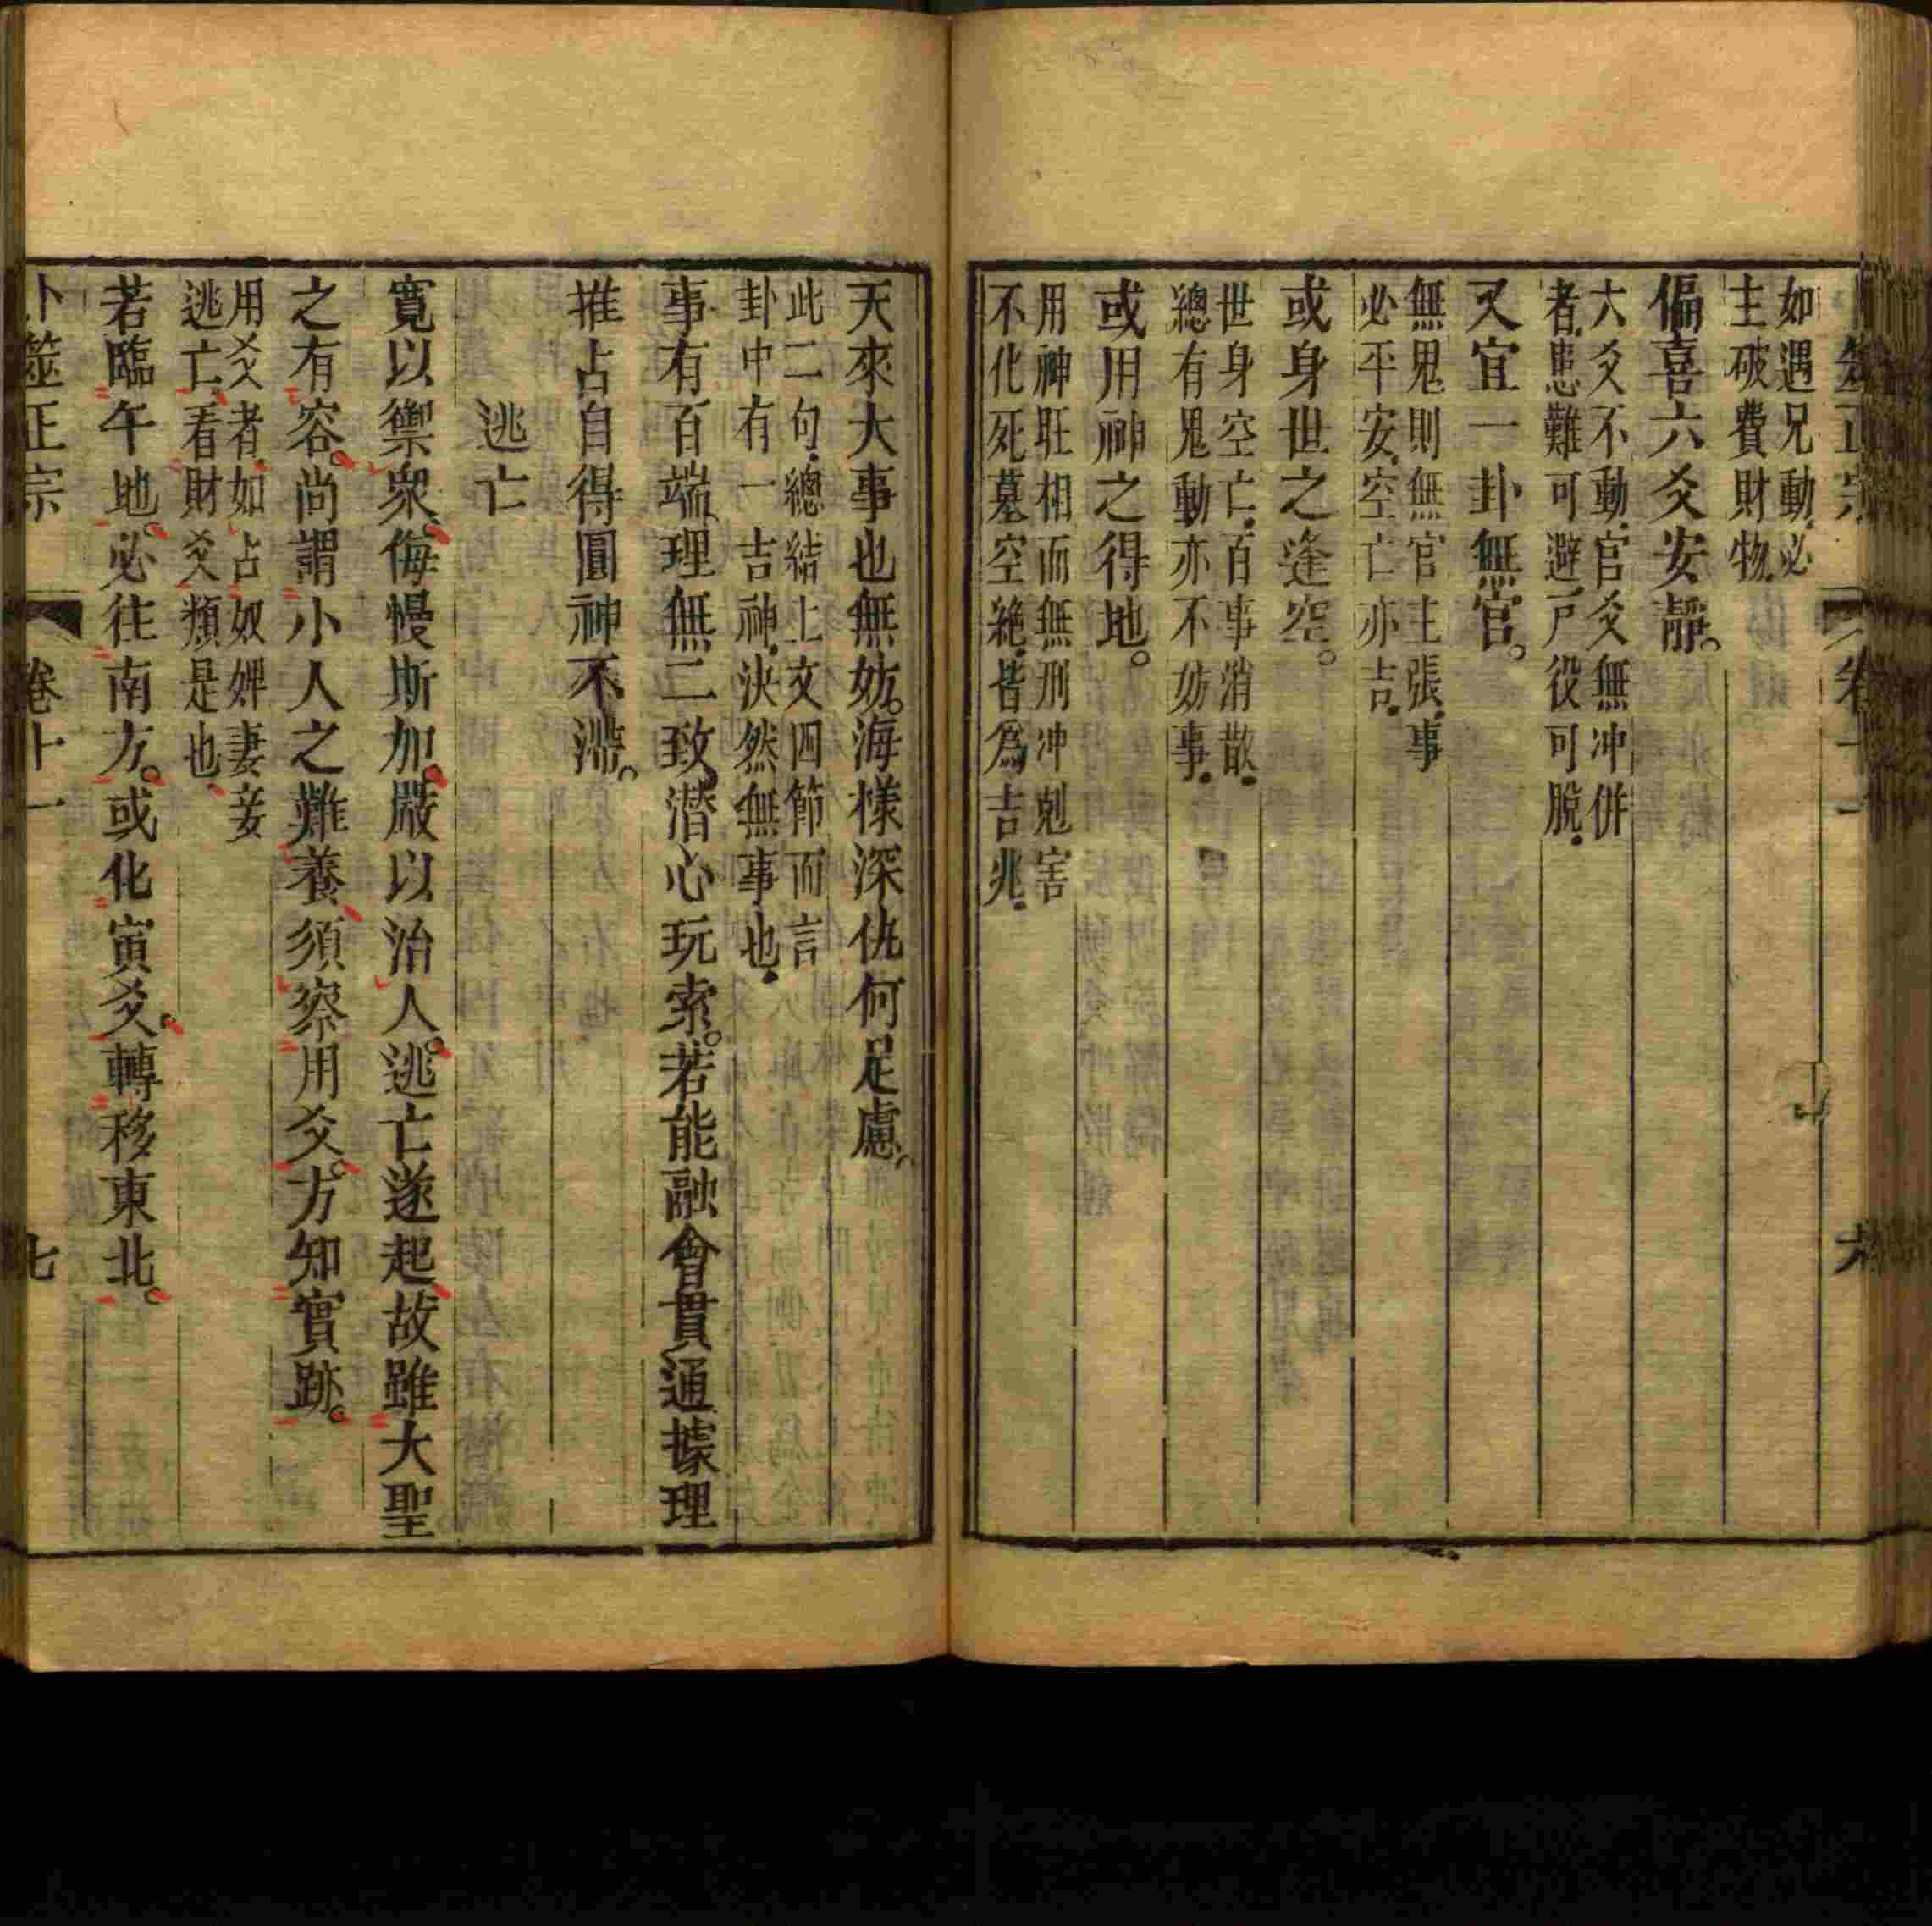 筮正宗 卷十一 六
如遇兄動必
主破費財物
偏喜六爻安靜。
六爻不動官爻無冲併
者患難可避戸役可脫
又宜一卦無官。
無鬼則無官主張事
必平安空亡亦吉
或身世之逢空。
世身空亡百事消散
總有鬼動亦不妨事
或用神之得地。
用神旺相而無刑冲剋害
不化死墓空絶皆爲吉兆
天來大事也無妨。海樣深仇何足慮。
此二句總結上文四節而言
卦中有一吉神决然無事也
事有百端理無二致潛心玩索。若能融會貫通據理
推占自得圓神不滯。
逃亡
寛以禦衆侮慢斯加。嚴以治人。逃亡遂起故雖大聖
之有容。尚謂小人之難養須察用爻。方知實跡。
用爻者如占奴婢妻妾
逃亡看財爻類是也
若臨午地。必往南方。或化寅爻。轉移東北。
卜筮正宗 卷十一 七